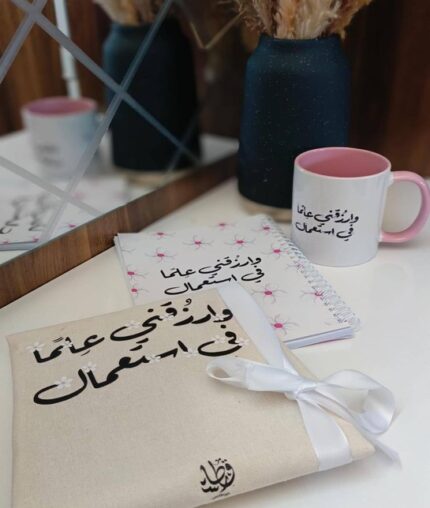 وارزقني علما
في استعمال
وارزُقني علما
في استعمال
وارزُقَني عِلمًا
في استعمال
قرطاس